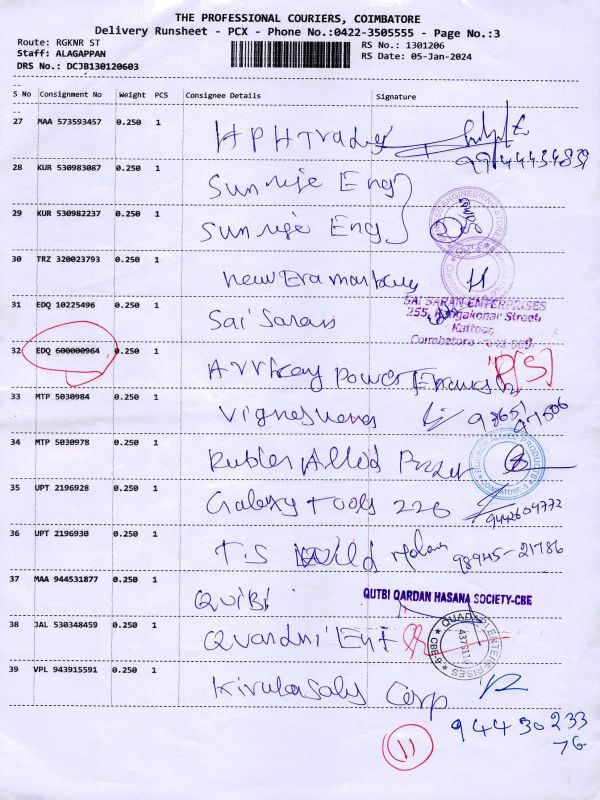 THE PROFESSIONAL COURIERS, COIMBATORE
Delivery Runsheet - PCX - Phone No.:0422-3505555 - Page No.:3
Route: RGKNR ST
RS No.: 1301206
Staff: ALAGAPPAN
RS Date: 05-Jan-2024
DRS No.: DCJB130120603
S No Consignment No Weight PCS Consignee Details Signature
27 MAA 573593457 0.250 1 HPH Trader
28 KUR 530983087 0.250 1 Sunrise Eng
29 KUR 530982237 0.250 1 Sunrise Eng
30 TRZ 320023793 0.250 1 New Era
31 EDQ 10225496 0.250 1 Sai Saran
SAI SARAN ENTERPRISES
255, Street,
Kattoor,
Coimbatore
32 EDQ 600000964 0.250 1 Power P[S]
33 MTP 5030984 0.250 1
34 MTP 5030978 0.250 1 Rubber Allied
COIMBATORE-9
35 UPT 2196928 0.250 1 Galaxy Tools 226 9442604772
36 UPT 2196930 0.250 1 T.S 98945-21786
37 MAA 944531877 0.250 1 QUiBi
QUTBI QARDAN HASANA SOCIETY-CBE
38 JAL 530348459 0.250 1
QUADRI ENTERPRISES CBE-9
39 VPL 943915591 0.250 1 Corp
94430 233
76
11